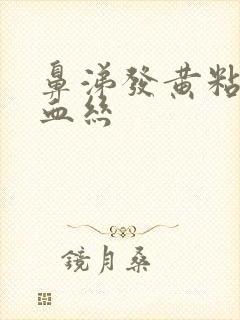 鼻涕發黃粘
血絲
鏡月桑